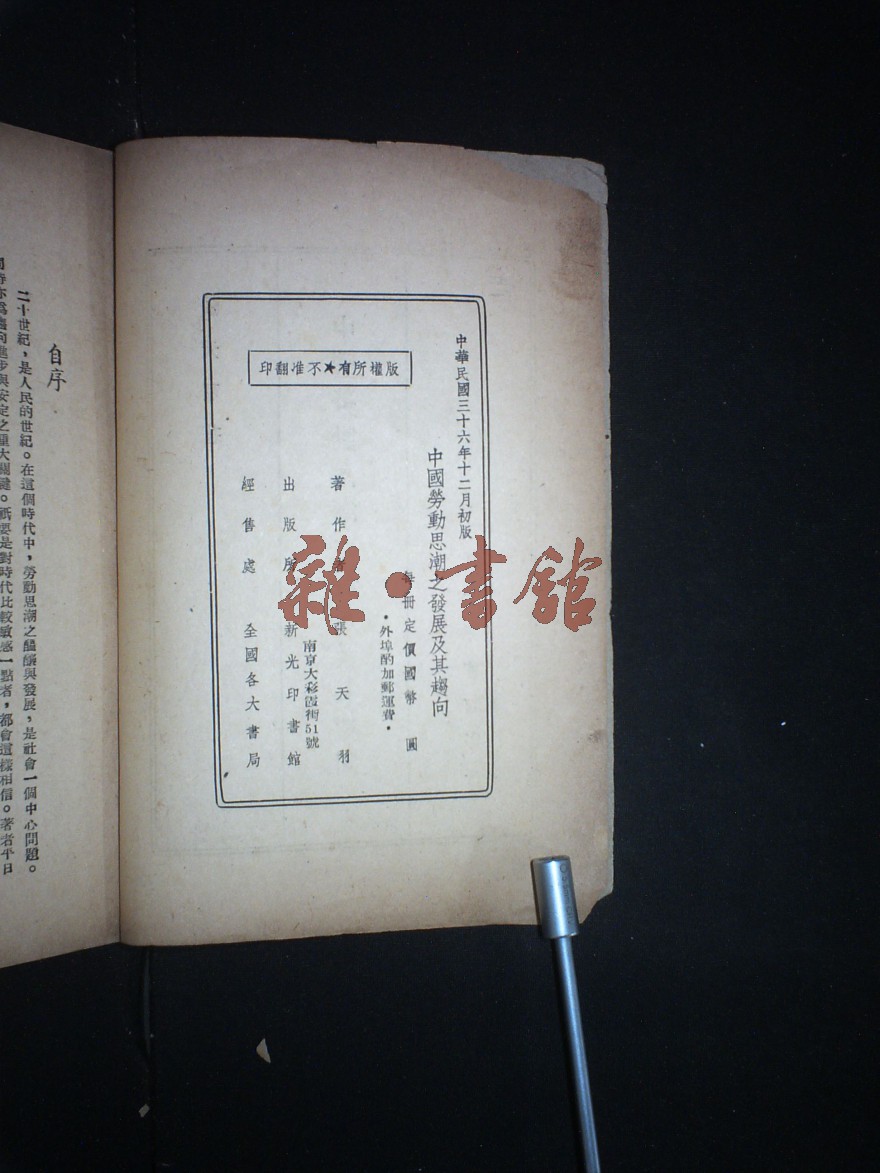 中華民國三十六年十二月初版
中國勞動思潮之發展及其趨向
每冊定價國幣 圓
•外埠酌加郵運費•
版權所有★不准翻印
著作者 張天羽
南京大彩霞街51號
出版所 新光印書館
經售處 全國各大書局
自序
二十世紀，是人民的世紀。在這個時代中，勞動思潮之醞釀與發展，是社會一個中心問題。
同時亦為趨向進步與安定之重大關鍵。祇要是對時代比較敏感一點者，都會這樣相信。著者平日
雜·書館